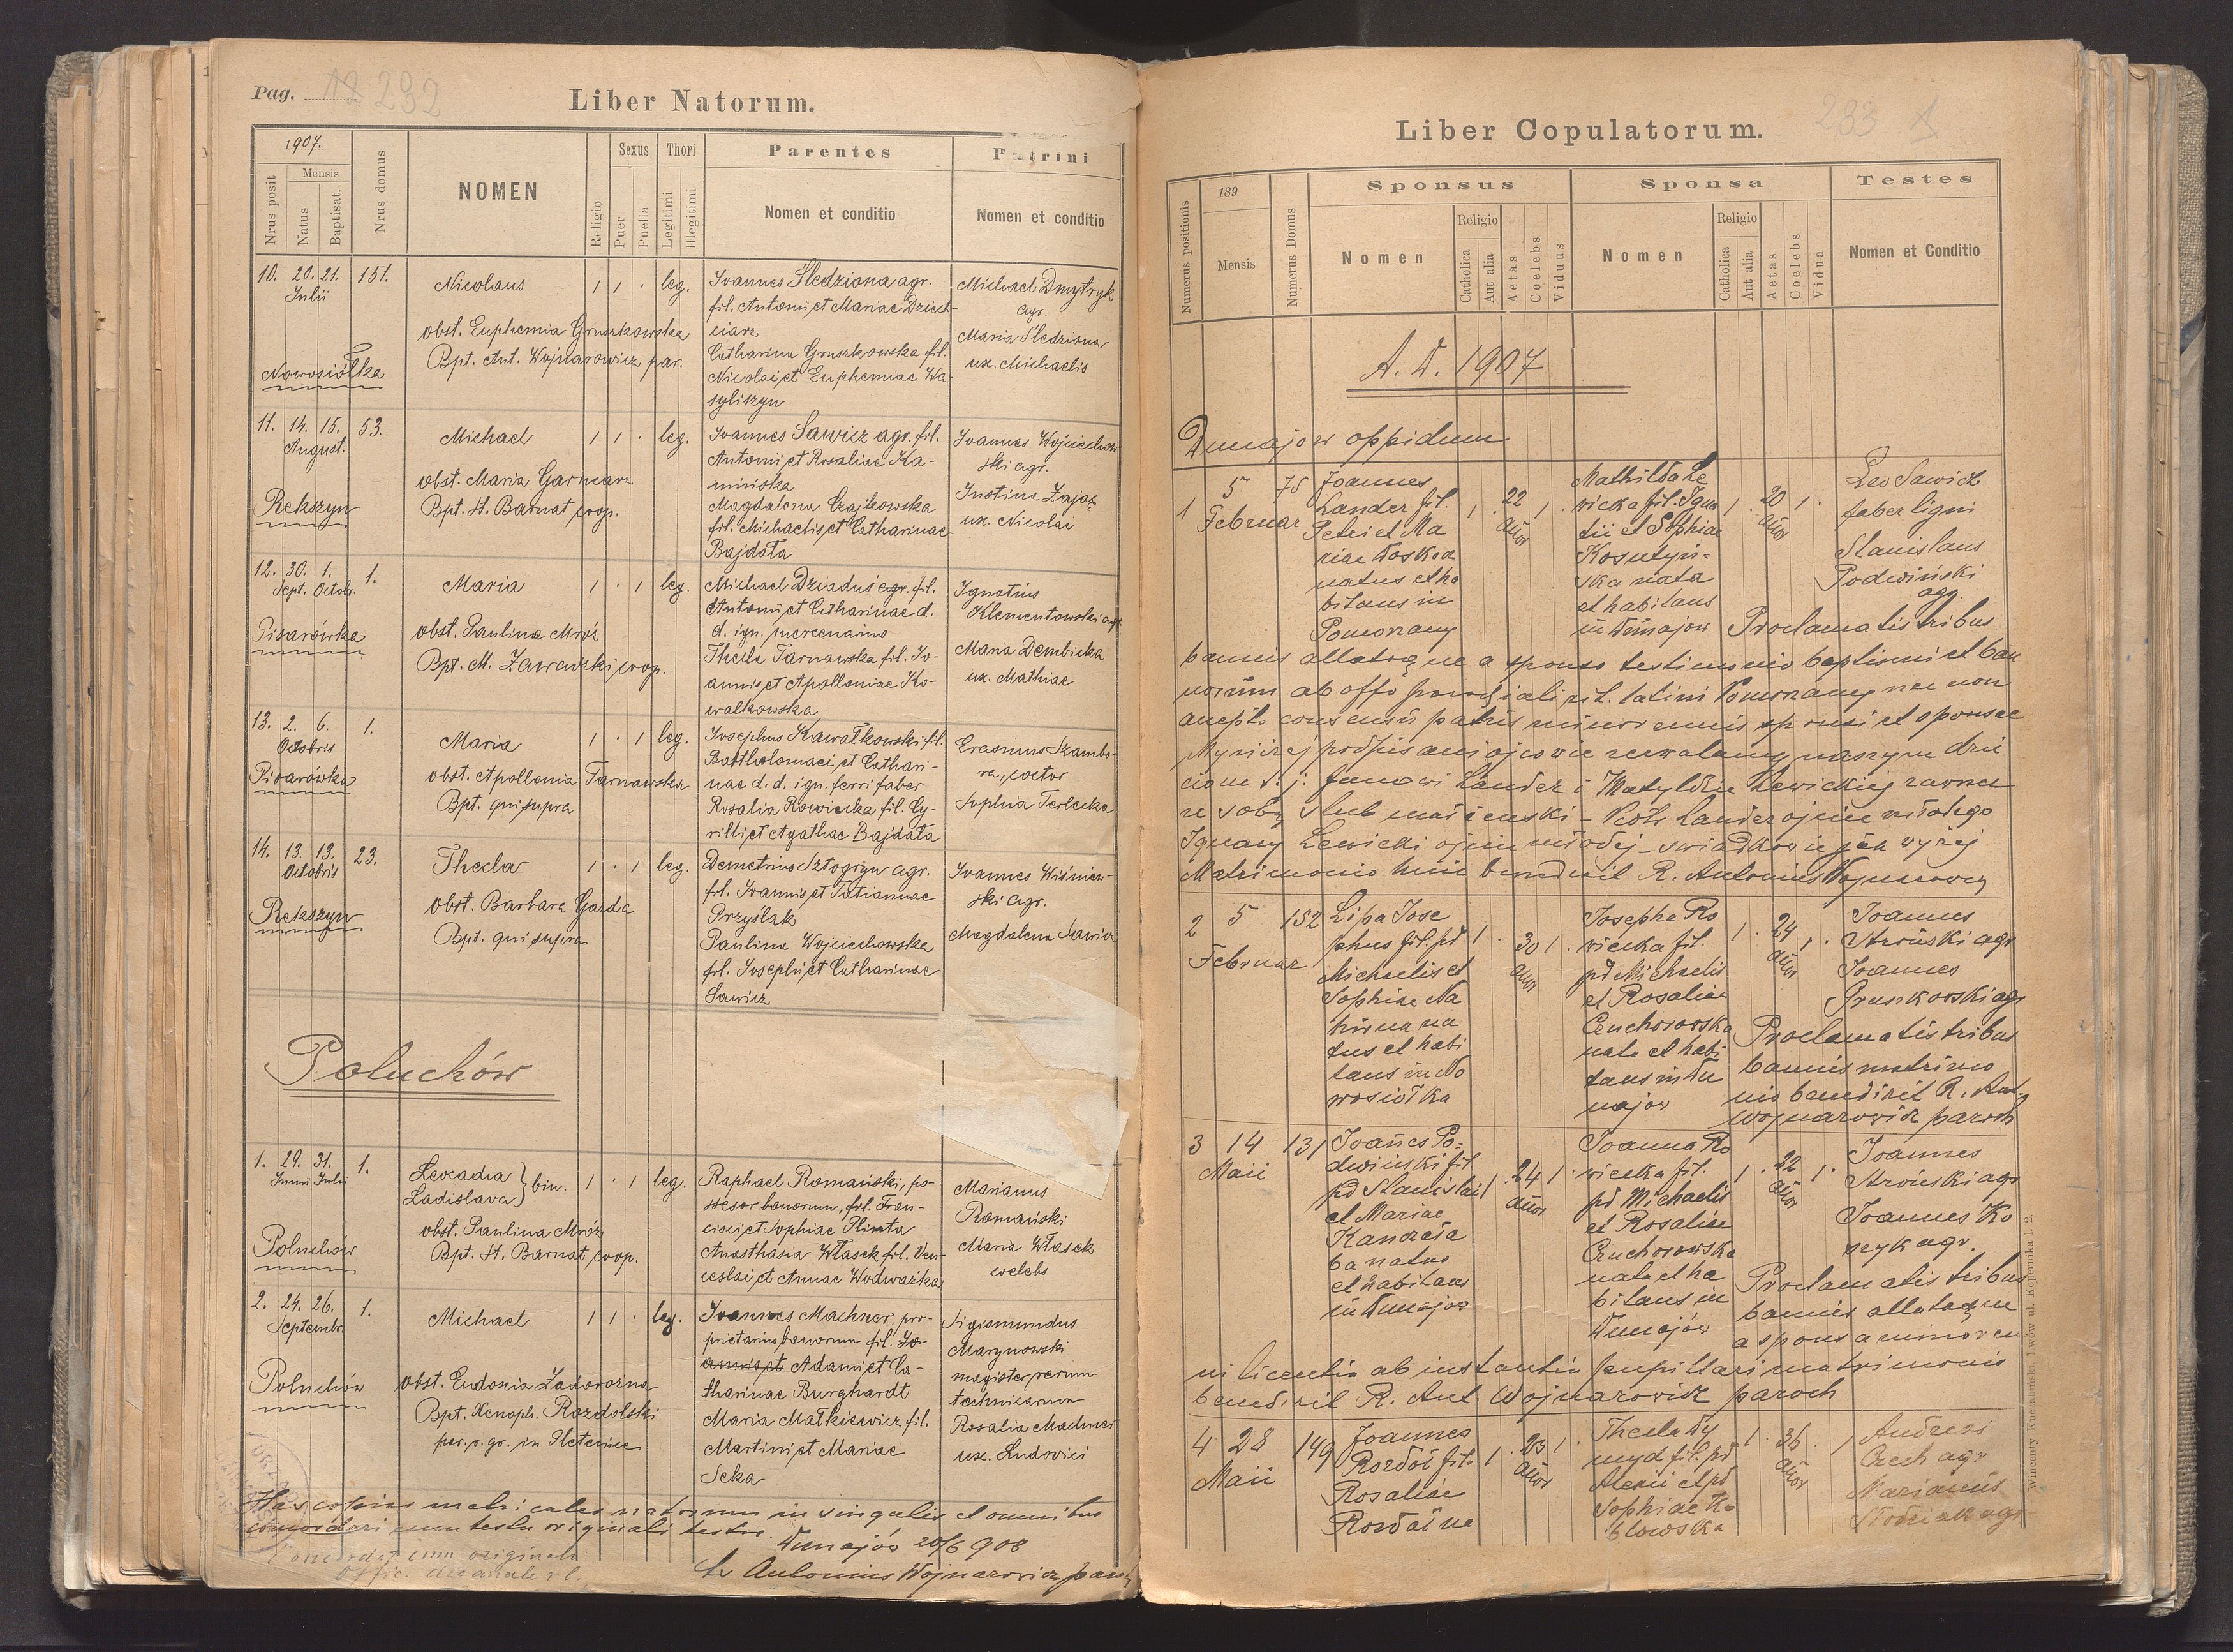 Pag. 18 292
Liber Natorum.
1907.
Nrus posit
Mensis
Natus
Baptisat.
Nrus domus
NOMEN
Religio
Sexus
Puer
Puella
Thori
Legitimi
Illegitimi
Parentes
Nomen et conditio
Patrini
Nomen et conditio
10. 20. 21. 151.
Julii
Nowosiółka
Nicolaus 1 1 . leg.
obst. Euphemia Gruszkowska
Bpt. Ant. Wojnarowicz par.
Ioannes Śledziona agr.
fil. Antonii et Mariae Dziech-
ciarz
Catharina Gruszkowska fil.
Nicolai et Euphemiae Wa-
syliszyn
Michael Dmytryk
agr.
Maria Śledziona
ux. Michaelis
11. 14. 15. 53.
August.
Rekszyn
Michael 1 1 . leg.
obst. Maria Garncarz
Bpt. St. Barnat coop.
Ioannes Sawicz agr. fil.
Antonii et Rosaliae Ka-
mińska
Magdalena Czajkowska
fil. Michaelis et Catharinae
Bajdała
Ioannes Wojciechow
ski agr.
Justina Zając
ux. Nicolai
12. 30. 1. 1.
Sept. Octob.
Pisarówka
Maria 1 . 1 leg.
obst. Paulina Mróz
Bpt. M. Zawadzki coop.
Michael Dziaduś agr. fil.
Antonii et Catharinae d.
d. ign. mercenario
Thecla Tarnawska fil. Io-
annis et Apolloniae Ko-
walkowska
Ignatius
Klementowski agr
Maria Dembicka
ux. Mathiae
13. 2. 6. 1.
Octobris
Pisarówka
Maria 1 . 1 leg.
obst. Apollonia Tarnawska
Bpt. qui supra
Iosephus Kawałkowski fil.
Bartholomaei et Cathari-
nae d. d. ign. ferri faber
Rosalia Rowicka fil. Cy-
rilli et Agathae Bajdała
Erasmus Szambo-
ra, coctor
Sophia Terlecka
14. 13. 13. 23.
Octobris
Rekszyn
Thecla 1 . 1 leg.
obst. Barbara Gazda
Bpt. qui supra
Demetrius Sztogryn agr.
fil. Ioannis et Tatiannae
Przyślak
Paulina Wojciechowska
fil. Iosephi et Catharinae
Sawicz
Ioannes Wiśniew-
ski agr.
Magdalena Sawicz
Poluchów
1. 29. 31. 1.
Junii Julii
Poluchów
Leocadia
Ladislava } bin. 1 . 1 leg.
obst. Paulina Mróz
Bpt. St. Barnat coop.
Raphael Romański, po-
ssesor bonorum, fil. Fran-
cisci et Sophiae Plinta
Anasthasia Własek fil. Ven-
ceslai et Annae Wodwarka
Marianus
Romański
Maria Własek
celebs
2. 24. 26. 1.
Septembr.
Poluchów
Michael 1 1 . leg.
obst. Eudoxia Zadorożna
Bpt. Xenoph. Rozdolski
par. r. gr. in Pletenice
Ioannes Machner, pro-
prietarius bonorum fil. Io-
annis et Adami et Ca-
tharinae Burghardt
Maria Małkiewicz fil.
Martini et Mariae
Seka
Sigismundus
Marynowski
magister rerum
technicarum
Rosalia Machner
ux. Ludovici
Has copias metricales natorum in singulis et omnibus
concordari cum textu originali testor.
Dunajów 20/6 908
Concordat cum originali
Offic. decanale r. l.
Antonius Wojnarowicz paroch
Liber Copulatorum.
283 1
Numerus positionis
189
Mensis
Numerus Domus
Sponsus
Nomen
Religio
Catholica
Aut alia
Aetas
Coelebs
Viduus
Sponsa
Nomen
Religio
Catholica
Aut alia
Aetas
Coelebs
Vidua
Testes
Nomen et Conditio
A. D. 1907
Dunajow oppidum
1 5 75
Februar
Joannes
Lander fil.
Petri et Ma
riae
natus et ha
bitans in
Pomorzany
1 . 22 1 .
anor
Mathilda Le
wicka fil. Igna
tii et Sophiae
Kosutyń-
ska nata
et habitans
in Dunajow
1 . 20 1 .
anor
Leo Sawicz
faber ligni
Stanislaus
Podwiński
agr.
Proclamatis tribus
bannis allatoque a sponso testimonio baptismi et ban
norum ab offo parochiali rit. latini Pomorzany nec non
accepto consensu patris minorennis sponsi et sponsae
Myniżej podpisani ojcowie zezwalamy naszym dzie
ciom t. j. Janowi Lander i Matyldzie Lewickiej zawrzeć
ze sobą ślub małżeński – Piotr Lander ojciec młodego
Ignacy Lewicki ojciec młodej – swiadkowie jak wyżej
Matrimonio huic benedixit R. Antonius Wojnarowicz
2 5 152
Februar
Lipa Jose
phus fil. pd
Michaelis et
Sophiae Na
na
tus et habi
tans in No
wosiołka
1 . 30 1 .
anor
Josepha Ro
wicka fil.
pd Michaelis
et Rosaliae
Czuchrowska
nata et habi
tans in Du
najow
1 . 24 1 .
anor
Joannes
Stroński agr
Joannes
Gruszkowski agr
Proclamatis tribus
bannis matrimo
nio benedixit R. Ant
Wojnarowicz paroch
3 14 131
Maii
Joañes Po-
dwiński fil
pd Stanislai
et Mariae
ba natus
et habitans
in Dunajow
1 . 24 1 .
anor
Joanna Ro
wicka fil.
pd Michaelis
et Rosaliae
Czuchrowska
nata et ha
bitans in
Dunajów
1 . 22 1 .
anor
Joannes
Stroński agr
Joannes Ko
zyk agr.
Proclamatis tribus
bannis allataque
a sponsa minoren
ni licentia ab instantia pupillari matrimonio
benedixit R. Ant. Wojnarowicz paroch
4 28 149
Maii
Joannes
Rozdół fil.
Rosaliae
1 . 23 1 .
anor
Thecla Dy
myd fil. pd
Alexii et pd
Sophiae Ko
złowska
1 . 36 . 1
anor
Andreas
Czech agr
Marianus
agr
Wincenty Kuczabiński Lwów ul. Kopernika l. 2.